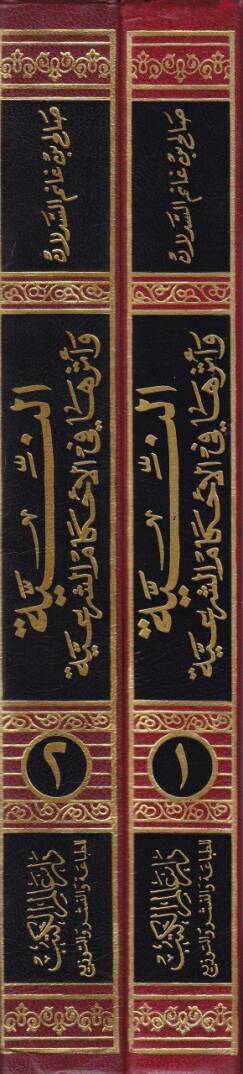 صالح بن غانم السدلان
النية
وأثرها في الأحكام الشرعية
١
دار عالم الكتب
للطباعة والنشر والتوزيع
صالح بن غانم السدلان
النية
وأثرها في الأحكام الشرعية
٢
دار عالم الكتب
للطباعة والنشر والتوزيع